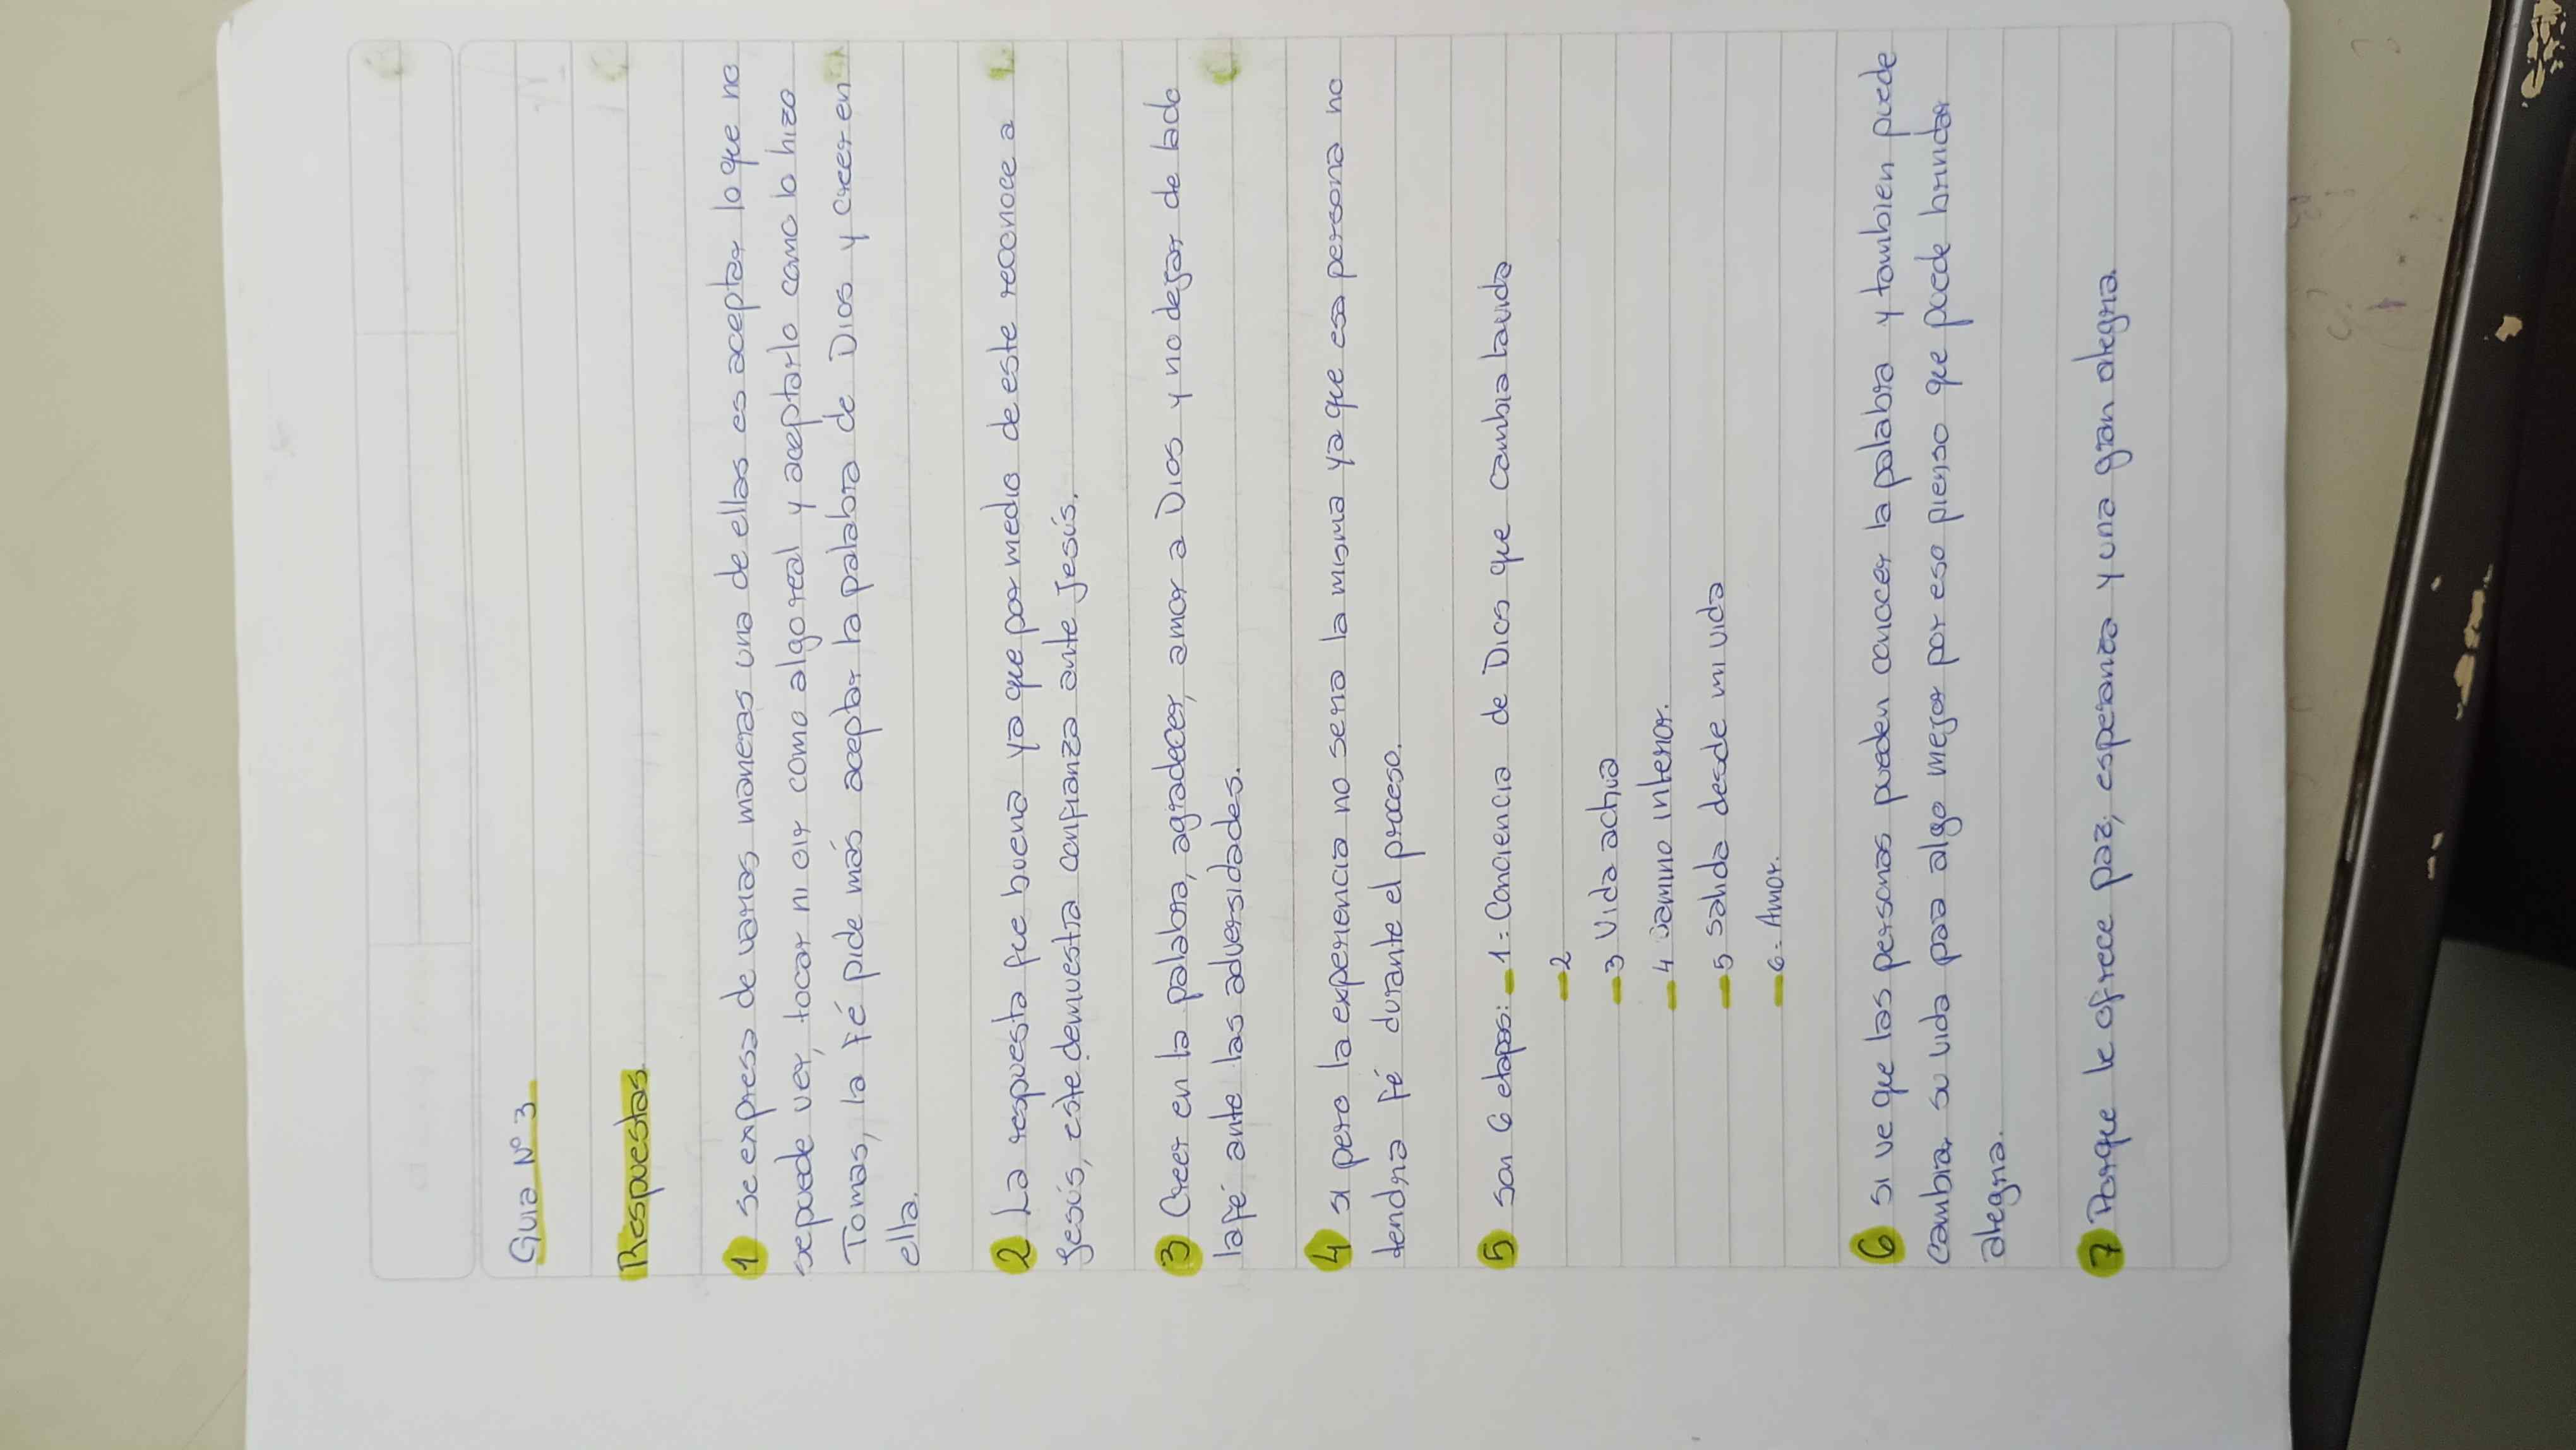 Guia N° 3
Respuestas
1 se expresa de varias maneras una de ellas es aceptar lo que no
sepuede ver, tocar ni oir como algo real y aceptarlo como lo hizo
Tomas, la Fé pide más aceptar la palabra de Dios y creer en
ella.
2 La respuesta fue buena ya que por medio de este reconoce a
Jesús, este demuestra confianza ante Jesús.
3 Creer en la palabra, agradecer, amar a Dios y no dejar de lado
la fé ante las adversidades.
4 si pero la experiencia no seria la misma ya que esa persona no
tendria Fé durante el proceso.
5 son 6 etapas: - 1= Conciencia de Dios que cambia la vida
- 2
- 3 Vida activa
- 4 Camino interior.
- 5 salida desde mi vida
- 6= Amor.
6 si ve que las personas pueden conocer la palabra y tambien puede
cambiar su vida para algo mejor por eso pienso que puede brindar
alegria.
7 Porque le ofrece paz, esperanza y una gran alegria.